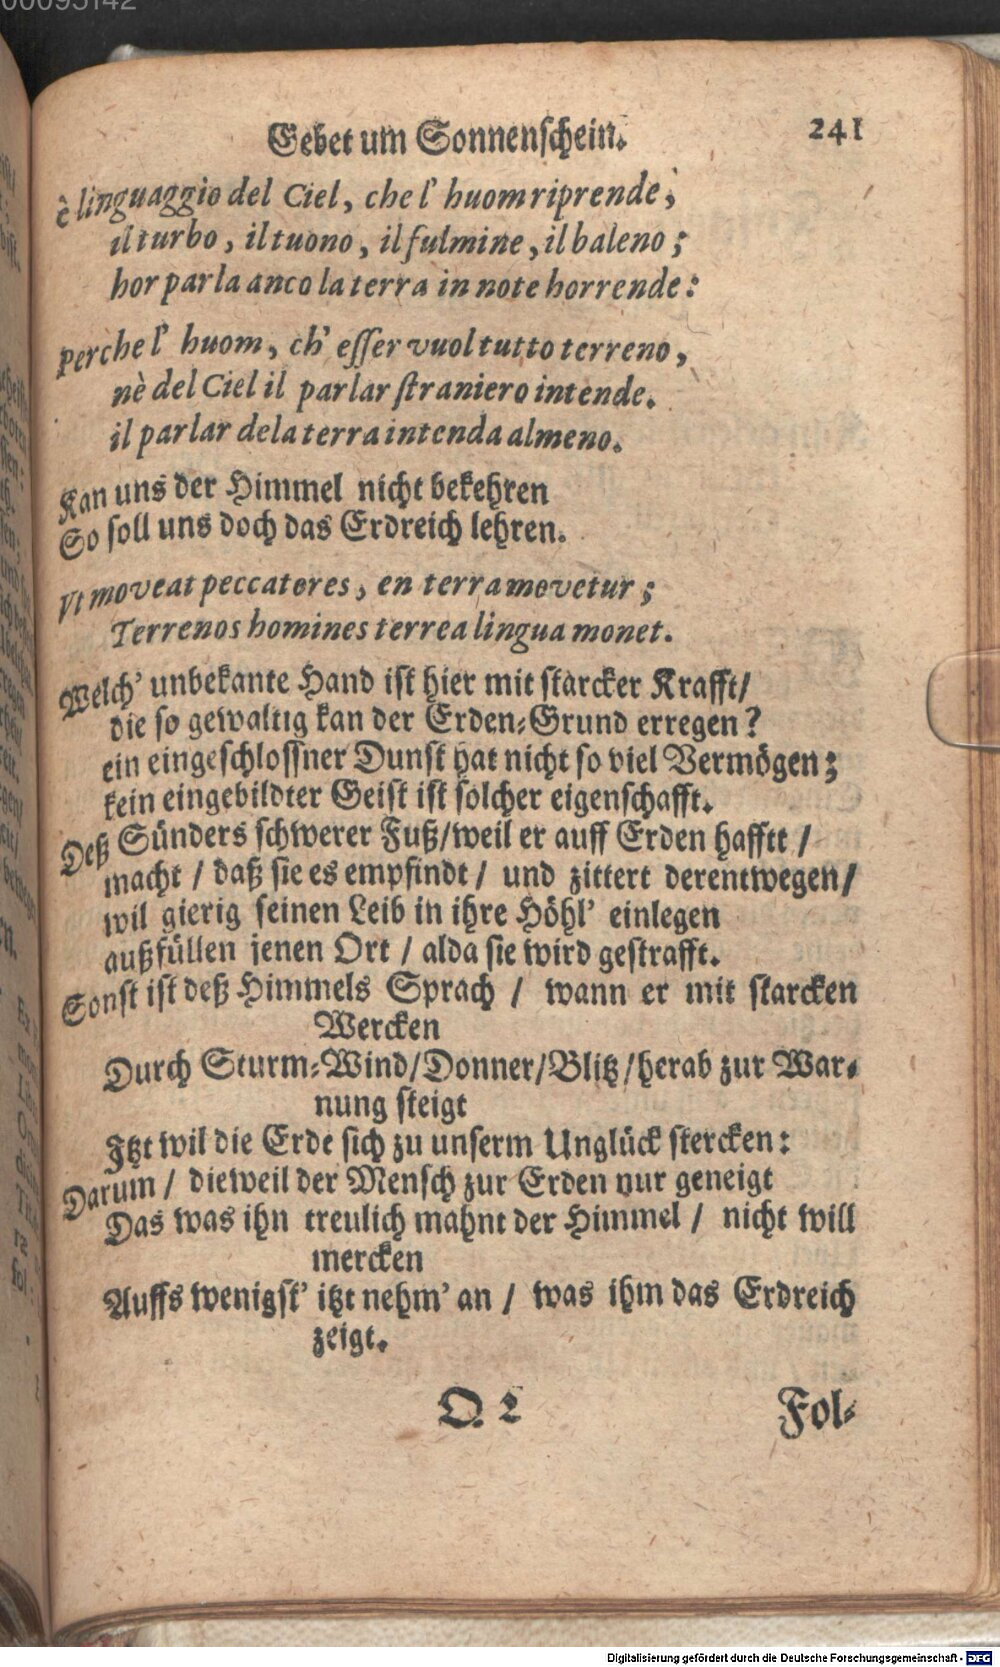 00095142
Gebet um Sonnenschein. 241
è linguaggio del Ciel, che l' huom riprende;
il turbo, il tuono, il fulmine, il baleno;
hor parla anco la terra in note horrende:
perche l' huom, ch' esser vuol tutto terreno,
nè del Ciel il parlar straniero intende.
il parlar de la terra intenda almeno.
Kan uns der Himmel nicht bekehren
So soll uns doch das Erdreich lehren.
Vt moveat peccatores, en terra movetur;
Terrenos homines terrea lingua monet.
Welch' unbekante Hand ist hier mit starcker Krafft/
die so gewaltig kan der Erden-Grund erregen?
ein eingeschlossner Dunst hat nicht so viel Vermögen;
kein eingebildter Geist ist solcher eigenschafft.
Deß Sünders schwerer Fuß/weil er auff Erden hafftt /
macht / daß sie es empfindt / und zittert derentwegen/
wil gierig seinen Leib in ihre Höhl' einlegen
außfüllen jenen Ort / alda sie wird gestrafft.
Sonst ist deß Himmels Sprach / wann er mit starcken
Wercken
Durch Sturm-Wind/Donner/Blitz/herab zur War-
nung steigt
Itzt wil die Erde sich zu unserm Unglück stercken:
Darum / dieweil der Mensch zur Erden nur geneigt
Das was ihn treulich mahnt der Himmel / nicht will
mercken
Auffs wenigst' itzt nehm' an / was ihm das Erdreich
zeigt.
Q 2 Fol-
Digitalisierung gefördert durch die Deutsche Forschungsgemeinschaft - DFG